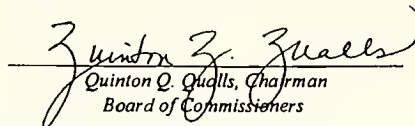 Quinton Q. Qualls
Quinton Q. Qualls, Chairman
Board of Commissioners